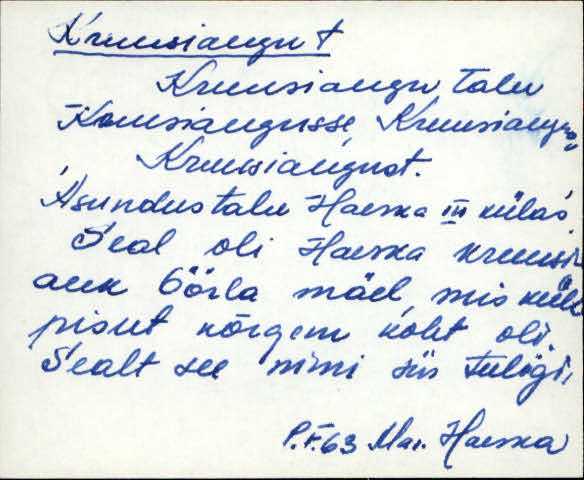 Kruusiaugu t
Kruusiaugu talu
Kruusiaugusse, Kruusiaugus,
Kruusiaugust.
Asundustalu Haeska III külas
Seal oli Haeska kruusi-
auk mäel, mis küll
pisut kõrgem koht oli.
Sealt see nimi siis tulõgi.
P.F.63 Mar. Haeska